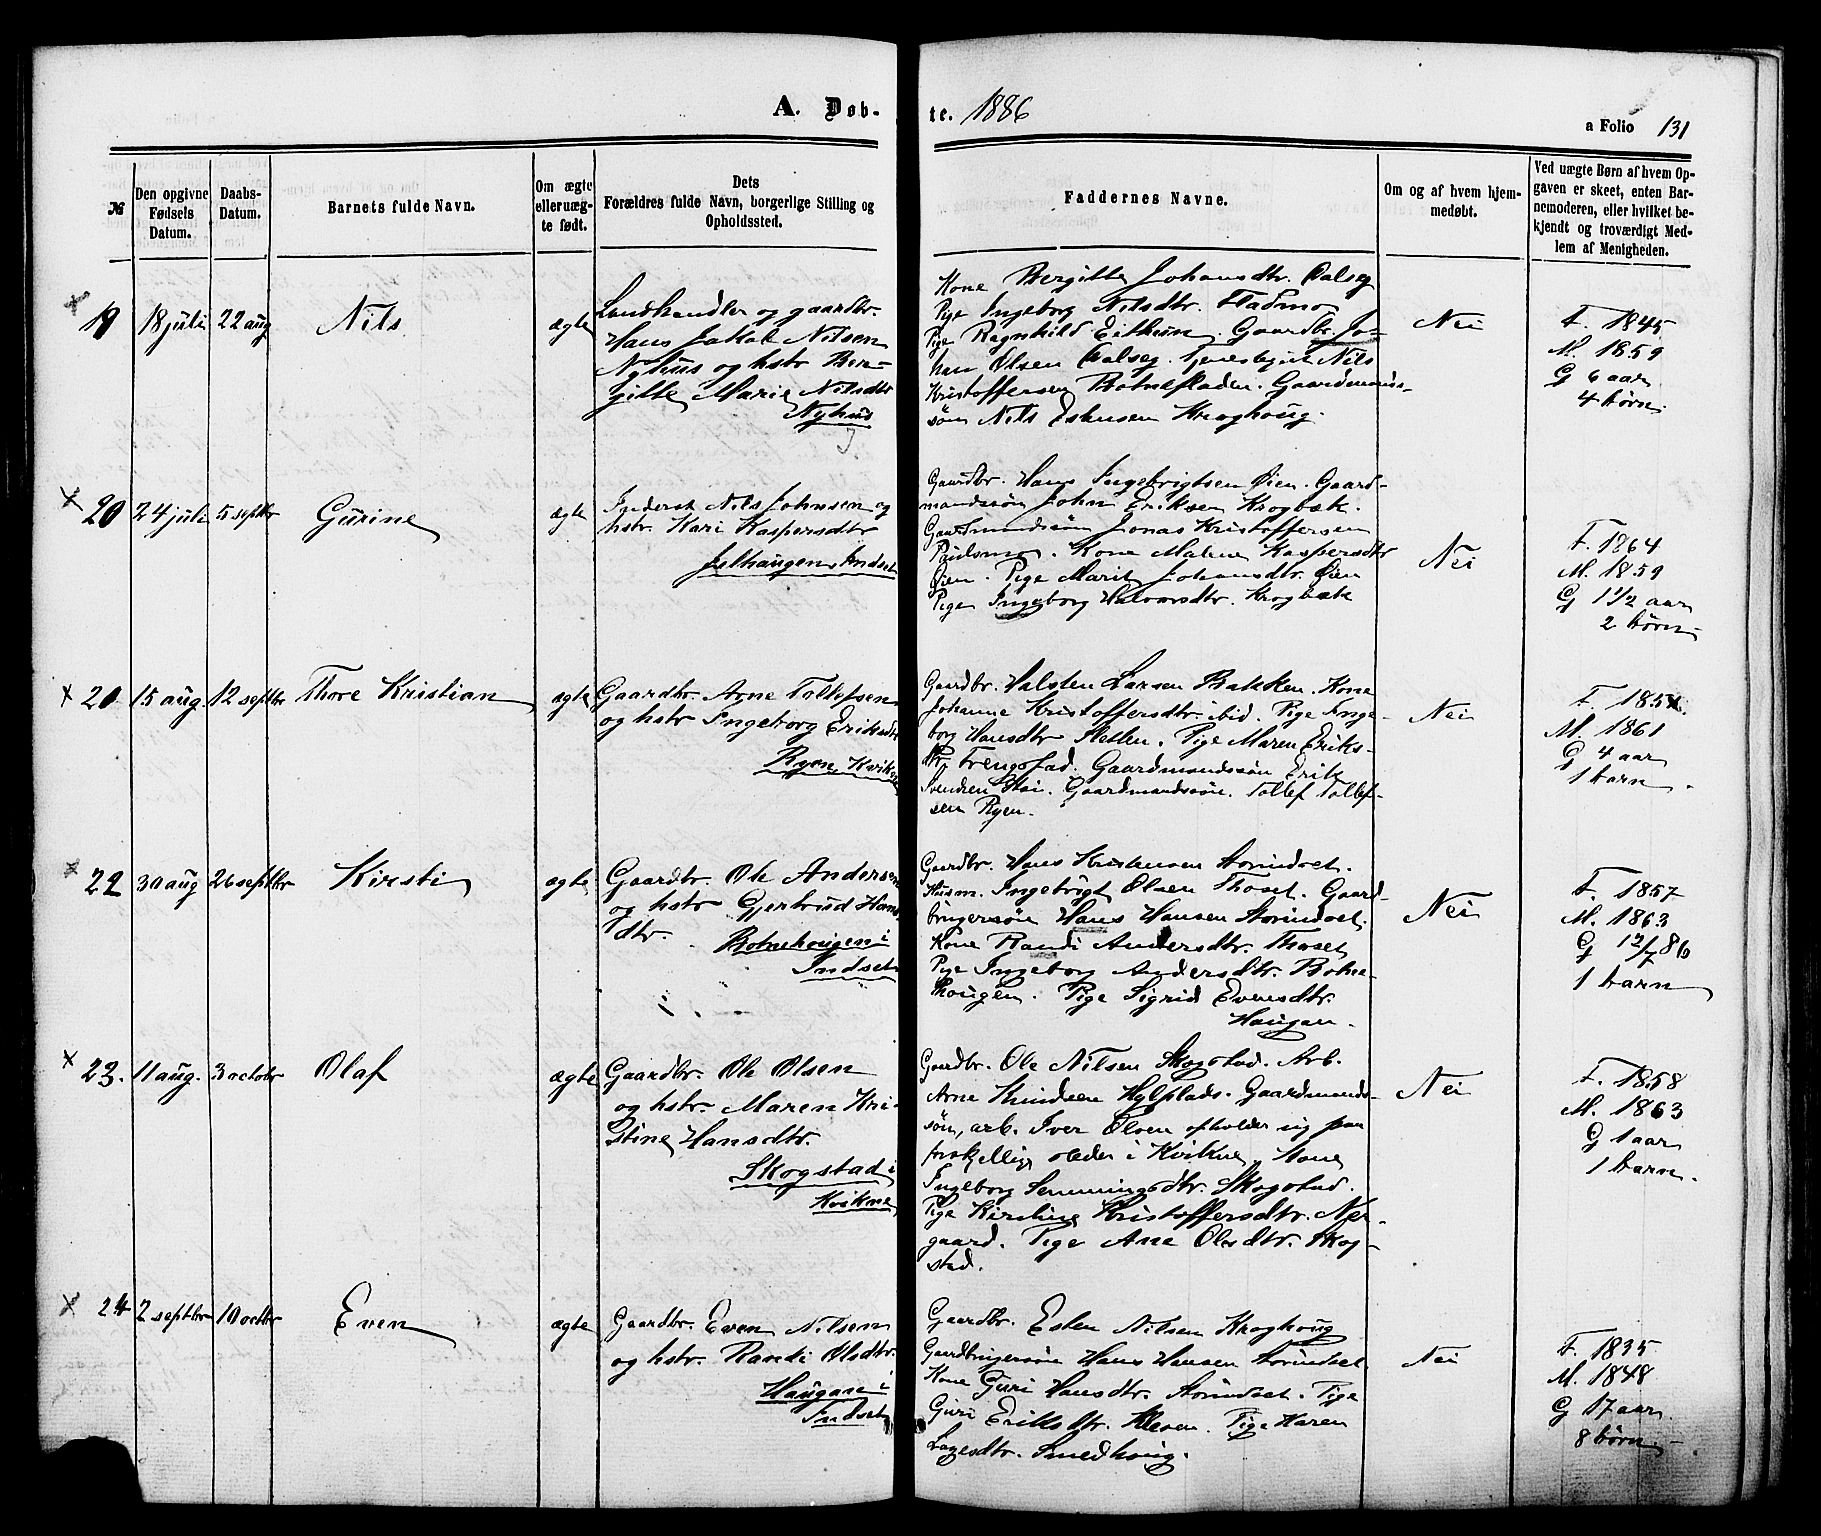 A. Døb-
te. 1886
a Folio 131
№
Den opgivne Fødsels Datum.
Daabs-Datum.
Barnets fulde Navn.
Om ægte eller uæg-te født.
Dets
Forældres fulde Navn, borgerlige Stilling og
Opholdssted.
Faddernes Navne.
Om og af hvem hjem-
medøbt.
Ved uægte Børn af hvem Op-
gaven er skeet, enten Bar-
nemoderen, eller hvilket be-
kjendt og troværdigt Med-
lem af Menigheden.
19 18 juli 22 aug Nils ægte
Landhandler og gaardbr.
Hans Jakob Nilsen
Nyhus og hstr Ber-
gitte Marie Nilsdtr
Nyhus
Kone Bergitte Johansdtr. Dalseg
Pige Ingeborg Nilsdtr. Fladmo
Pige Ragnhild Eithun. Gaardbr. Jo-
han Olsen Dalseg. Nils
Kristoffersen Botnefladen. Gaardmans-
søn Nils Estensen Kroghoug.
Nei
F. 1845
M. 1859
G 6 aar
4 børn.
20 24 juli 5 septbr Gurine ægte
Inderst Nils Johnsen og
hstr. Kari Kaspersdtr
Indset
Gaardbr. Hans Ingebrigtsen Øien. Gaard-
mandssøn John Eriksen Krogbæk.
Gaardmandssøn Jonas Kristoffersen
Paulsmo. Kone Malene Kaspersdtr
Øien. Pige Marit Johansdtr. Øien
Pige Ingeborg Halvorsdtr. Krogbæk
Nei
F. 1864
M. 1859
G 1 1/2 aar
2 børn
20 15 aug 12 septbr Thore Kristian ægte
Gaardbr. Arne Tollefsen
og hstr Ingeborg Eriksdtr
Ryen, Kvikne
Gaardbr. Halsten Larsen Bakken. Kone
Johanne Kristoffersdtr. ibid. Pige Inge-
borg Hansdtr Sletten. Pige Maren Eriks-
dtr. Frengstad. Gaardmandssøn Erik
Svendsen Stai. Gaardmandssøn. Tollef Tollef-
sen Ryen.
Nei
M. 1861
G 4 aar
1 barn.
22 30 aug 26 septbr Kirsti ægte
Gaardbr. Ole Andersen
og hstr Gjertrud Hans
dtr.
Botnehougen i
Indset
Gaardbr. Hans Kristensen Storindset.
Husm. Ingebrigt Olsen Thoset. Gaard-
brugersøn Hans Hansen Storindset.
Kone Randi Andersdtr. Thoset
Pige Ingeborg Andersdtr. Botne-
hougen. Pige Sigrid Evensdtr.
Haugan.
Nei
F. 1857
M. 1863
G 12/7 86
1 barn
23. 11 aug. 3 octobr Olaf ægte
Gaardbr. Ole Olsen
og hstr. Maren Kri-
stine Hansdtr.
Skogstad i
Kvikne
Gaardbr. Ole Nilsen Skogstad. Arb.
Arne Knudsen Hylplads. Gaardmands-
søn, arb. Iver Olsen opholder sig paa
forskjellige steder i Kvikne. Kone
Ingeborg Semmingsdtr. Skogstad.
Pige Kirstine Kristoffersdtr. Ner-
gaard. Pige Ane Olsdtr. Skog-
stad.
Nei
F. 1858
M. 1863
G 1 aar
1 barn.
24 2 septbr 10 octbr Even ægte
Gaardbr. Even Nilsen
og hstr. Randi Olsdtr.
Haugan i
Indset
Gaardbr. Esten Nilsen Kroghoug
Gaardbrugersøn Hans Hansen Storindset
Kone Guri Hansdtr. Storindset. Pige
Guri Eriksdtr. Pige Karen
Larsdtr. Smedhoug.
Nei
F. 1835
M. 1848
G 17 aar
8 børn.